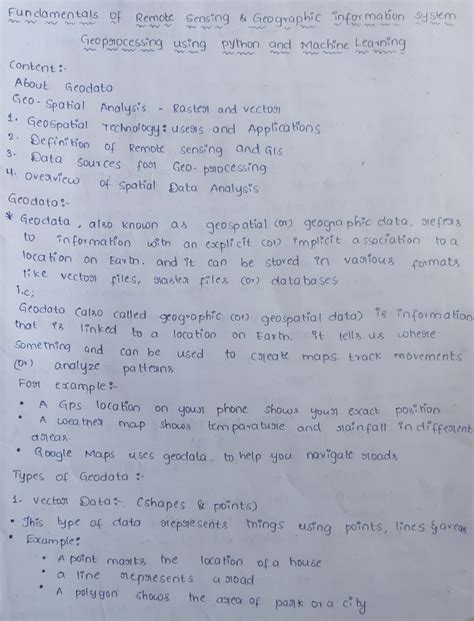 Fundamentals of Remote Sensing & Geographic information system
Geoprocessing using python and Machine Learning
Content:-
About Geodata
Geo-Spatial Analysis - Raster and vector
1. Geospatial Technology: users and Applications
2. Definition of Remote sensing and GIS
3. Data Sources for Geo-processing
4. Overview of Spatial Data Analysis
Geodata:-
* Geodata, also known as geospatial (or) geographic data, refers
to information with an explicit (or) implicit association to a
location on Earth. and it can be stored in various formats
like vector files, raster files (or) databases
i.e;
Geodata (also called geographic (or) geospatial data) is information
that is linked to a location on Earth. it tells us where
something and can be used to create maps. track movements
(or) analyze patterns
For example:-
• A GPS location on your phone shows your exact position
• A weather map shows temparature and rainfall in different
areas.
• Google Maps uses geodata, to help you navigate roads
Types of Geodata :-
1. Vector Data:- (shapes & points)
• This type of data represents things using points, lines & areas
• Example:
• A point marks the location of a house
• a line represents a road
• A polygon shows the area of park or a city